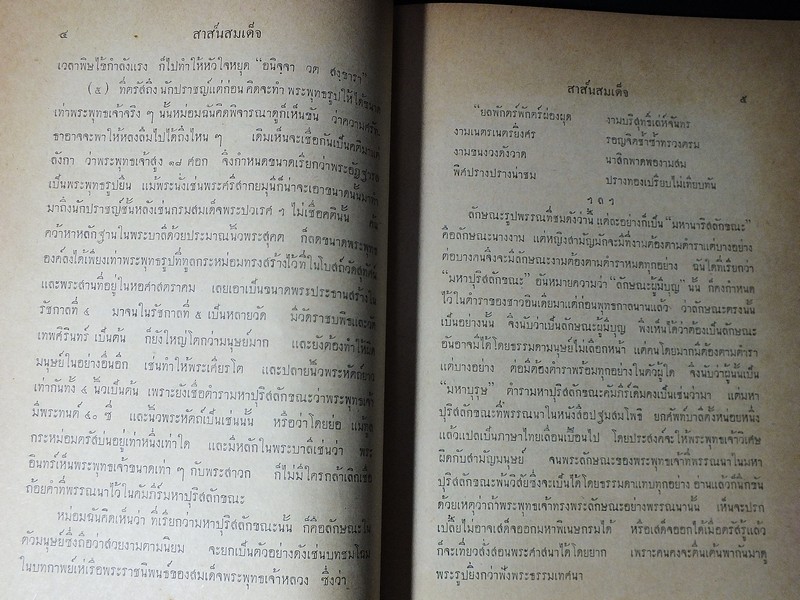 ๔ สาส์นสมเด็จ
เวลาพิษไข้กำลังแรง ก็ไปทำให้หัวใจหยุด “อนิจฺจา วต สงฺขารา”
(๕) ที่ตรัสถึงนักปราชญ์แต่ก่อน คิดจะทำพระพุทธรูปให้ได้ขนาด
เท่าพระพุทธเจ้าจริง ๆ นั้นหม่อมฉันคิดพิจารณาดูก็เห็นขัน ว่าความศรัท
ธาอาจจะพาให้หลงลืมไปได้ถึงไหน ๆ เดิมเห็นจะเชื่อกันเป็นคติมาแต่
ลังกา ว่าพระพุทธเจ้าสูง ๑๘ ศอก จึงกำหนดขนาดเรียกว่าพระอัฏฐารส
เป็นพระพุทธรูปยืน แม้พระนั่งเช่นพระศรีสากยมุนีก็น่าจะเอาขนาดนั้นมาทำ
มาถึงนักปราชญ์ชั้นหลังเช่นกรมสมเด็จพระปวเรศ ฯ ไม่เชื่อคตินั้น ค้น
คว้าหาหลักฐานในพระบาลีด้วยประมาณนิ้วพระสุคต ก็ลดขนาดพระพุทธ
องค์ลงได้เพียงเท่าพระพุทธรูปที่ทูลกระหม่อมทรงสร้างไว้ที่ในโบสถ์วัดสุทัศน์
และพระส้านที่อยู่ในหอศาสตราคม เลยเอาเป็นขนาดพระประธานสร้างใน
รัชกาลที่ ๔ มาจนในรัชกาลที่ ๕ เป็นหลายวัด มีวัดราชบพิธและวัด
เทพศิรินทร์ เป็นต้น ก็ยังใหญ่โตกว่ามนุษย์มาก และยังต้องทำให้ผิด
มนุษย์ในอย่างอื่นอีก เช่นทำให้พระเศียรโต และปลายนิ้วพระหัตถ์ยาว
เท่ากันทั้ง ๔ นิ้วเป็นต้น เพราะยังเชื่อตำรามหาปุริสลักขณะว่าพระพุทธเจ้า
มีพระทนต์ ๔๐ ซี่ และนิ้วพระหัตถ์เป็นเช่นนั้น หรือว่าโดยย่อ แม้ทูล
กระหม่อมตรัสบ่นอยู่เท่าหนึ่งเท่าใด และมีหลักในพระบาลีเช่นว่า พระ
อินทร์เห็นพระพุทธเจ้าขนาดเท่า ๆ กับพระสาวก ก็ไม่มีใครกล้าเลิกเชื่อ
ถ้อยคำที่พรรณนาไว้ในคัมภีร์มหาปุริสลักขณะ
หม่อมฉันคิดเห็นว่า ที่เรียกว่ามหาปุริสลักขณะนั้น ก็คือลักษณะใน
ตัวมนุษย์ซึ่งถือว่าสวยงามตามนิยม จะยกเป็นตัวอย่างดังเช่นบทชมโฉม
ในบทกาพย์เห่เรือพระราชนิพนธ์ของสมเด็จพระพุทธเจ้าหลวง ซึ่งว่า
สาส์นสมเด็จ ๕
“ยลพักตร์พักตร์ผ่องผุด งามบริสุทธิ์เล่ห์จันทร
งามเนตรเนตรยิ่งศร รอญจิตช้ำซ้ำทรวงตรม
งามขนงวงดังวาด นาสิกพาดพองามสม
พิศปรางปรางน่าชม ปรางทองเปรียบไม่เทียบทัน
ฯ ล ฯ
ลักษณะรูปพรรณที่ชมดังว่านี้ แต่ละอย่างก็เป็น “มหานารีสลักขณะ”
คือลักษณะนางงาม แต่หญิงสามัญมักจะมีที่งามต้องตามตำราแต่บางอย่าง
ต่อบางคนจึงจะมีลักษณะงามต้องตามตำราหมดทุกอย่าง ฉันใดที่เรียกว่า
“มหาปุริสลักขณะ” อันหมายความว่า “ลักษณะผู้มีบุญ” นั้น ก็คงกำหนด
ไว้ในตำราของชาวอินเดียมาแต่ก่อนพุทธกาลนานแล้ว ว่าลักษณะตรงนั้น
เป็นอย่างนั้น จึงนับว่าเป็นลักษณะผู้มีบุญ พึงเห็นได้ว่าต้องเป็นลักษณะ
อันอาจมีได้โดยธรรมดามนุษย์ไม่เลือกหน้า แต่คนโดยมากมีต้องตามตำรา
แต่บางอย่าง ต่อมีต้องตำราพร้อมทุกอย่างในตัวผู้ใด จึงนับว่าผู้นั้นเป็น
“มหาบุรุษ” ตำรามหาปุริสลักขณะคัมภีร์เดิมคงเป็นเช่นว่ามา แต่มหา
ปุริสลักขณะที่พรรณนาในหนังสือปฐมสมโพธิ ยกศัพท์บาลีตั้งหน่อยหนึ่ง
แล้วแปลเป็นภาษาไทยเลื่อนเปื้อนไป โดยประสงค์จะให้พระพุทธเจ้าวิเศษ
ผิดกับสามัญมนุษย์ จนพระลักษณะของพระพุทธเจ้าที่พรรณนาในมหา
ปุริสลักขณะพ้นวิสัยซึ่งจะเป็นได้โดยธรรมดาแทบทุกอย่าง อ่านแล้วก็นึกขัน
ด้วยเหตุว่าถ้าพระพุทธเจ้าทรงพระลักษณะอย่างพรรณนานั้น เห็นจะปรก
เปลี้ยไม่อาจเสด็จออกมหาพิเนษกรมได้ หรือเสด็จออกได้เมื่อตรัสรู้แล้ว
ก็จะเที่ยวสั่งสอนพระศาสนาได้โดยยาก เพราะคนคงจะตื่นเต้นพากันมาดู
พระรูปยิ่งกว่าฟังพระธรรมเทศนา